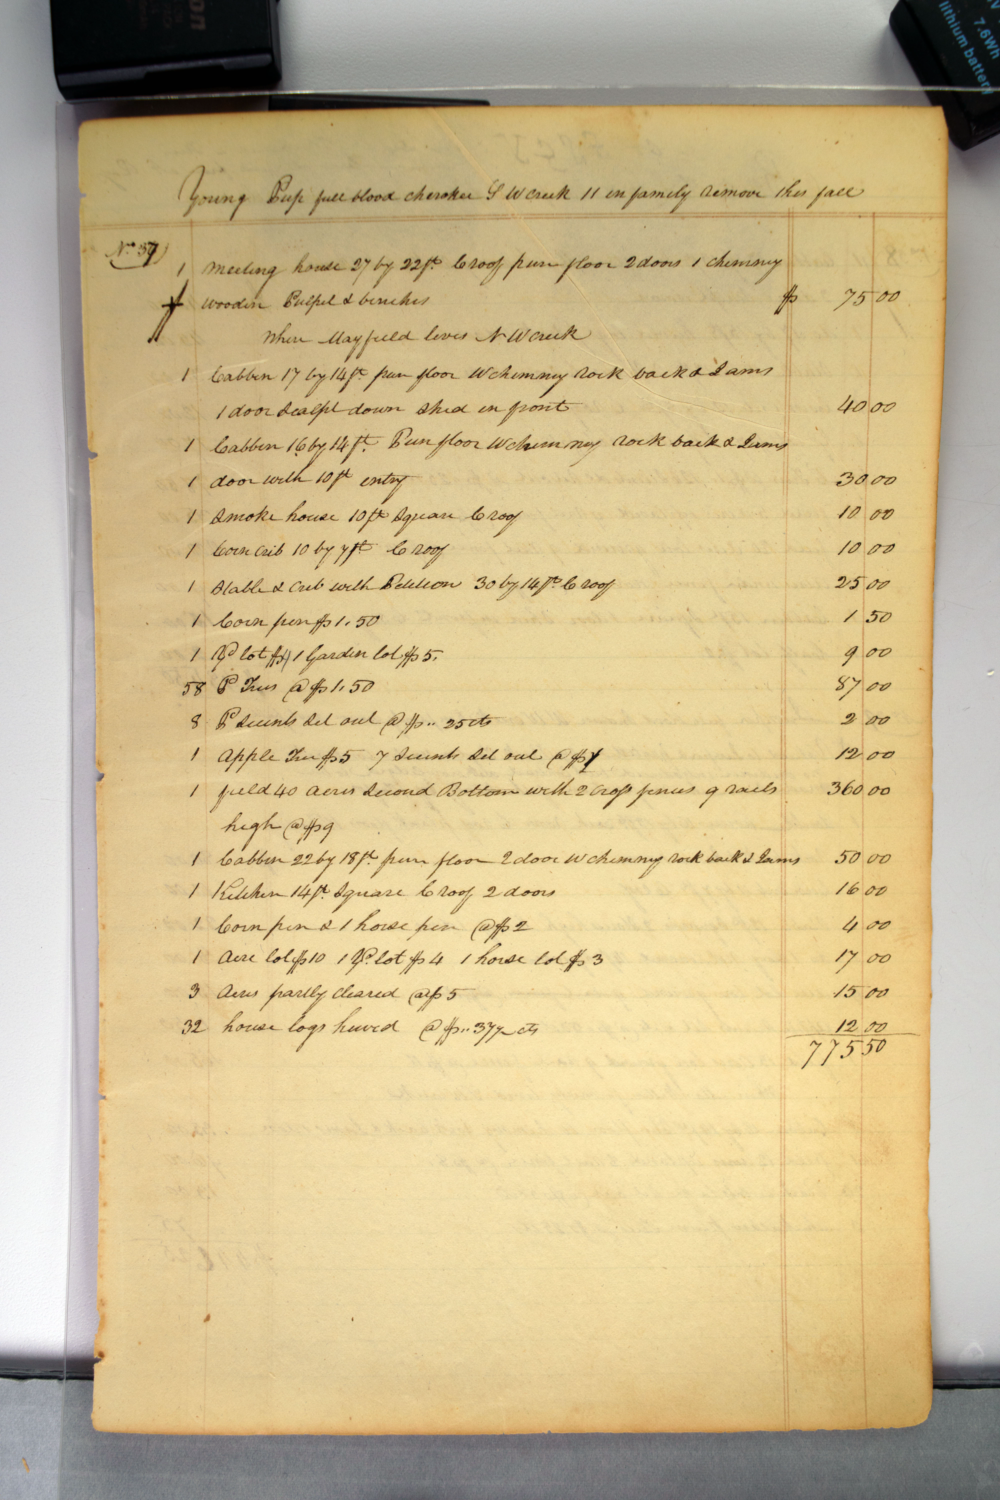 on
7.6Wh
lithium battery
Young Pup full blood cherokee S W creek 11 in family remove this fall
No. 57
1 meeting house 27 by 22 ft. C roof pun floor 2 doors 1 chimney
wooden Pulpit & binches $ 75 00
where Mayfield lives N W creek
1 Cabbin 17 by 14 ft. pun floor W chimney rock back & Jams
1 door Scalpt down Shed in front 40 00
1 Cabbin 16 by 14 ft. Pun floor W chimney rock back & Jams
1 door with 10 ft entry 30 00
1 Smoke house 10 ft Square C roof 10 00
1 Corn crib 10 by 7 ft C roof 10 00
1 Stable & crib with Petition 30 by 14 ft. C roof 25 00
1 Corn pen $1.50 1 50
1 lot $4 1 Garden lot $5. 9 00
58 P Trees @ $1.50 87 00
8 P Scients Set out @ $.. 25 cts 2 00
1 Apple Tree $5 7 Scients Set out @ $1 12 00
1 field 40 acres Second Bottom with 2 cross fences 9 rails 360 00
high @ $9
1 Cabbin 22 by 18 ft. pun floor 2 door W chimney rock back & Jams 50 00
1 Kitchen 14 ft. Square C roof 2 doors 16 00
1 Corn pen & 1 horse pen @ $2 4 00
1 Acre lot $10 1 lot $4 1 horse lot $3 17 00
3 Acres partly cleared @ $5 15 00
32 house logs hewed @ $.. 37½ cts 12 00
775 50